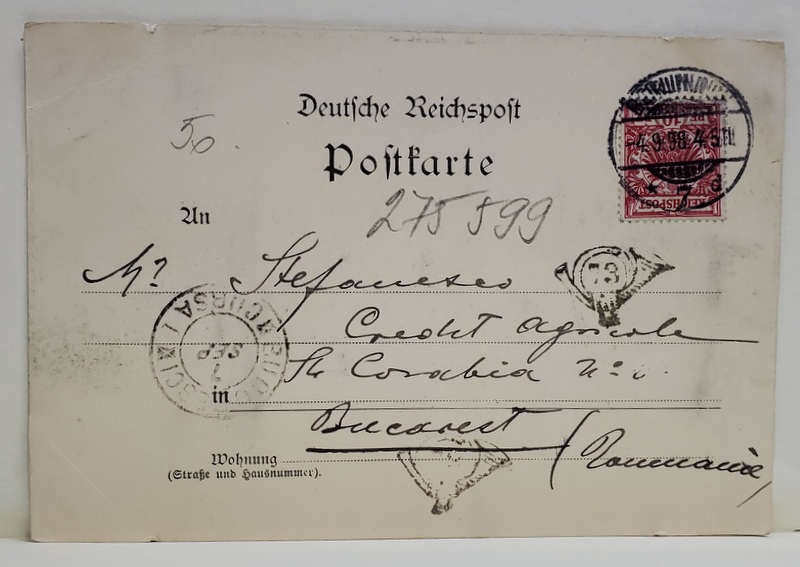 Deutsche Reichspost
Postkarte
50
275 599
An
Mr Stefanescu
Credit Agricole
Str Corabia No
in
Bucarest
(Roumanie)
Wohnung
(Straße und Hausnummer).
4.9.98. 4-5.N.
* 7 d
REICHSPOST
10
73
BUCURESCI
CURSA I
7
SEP